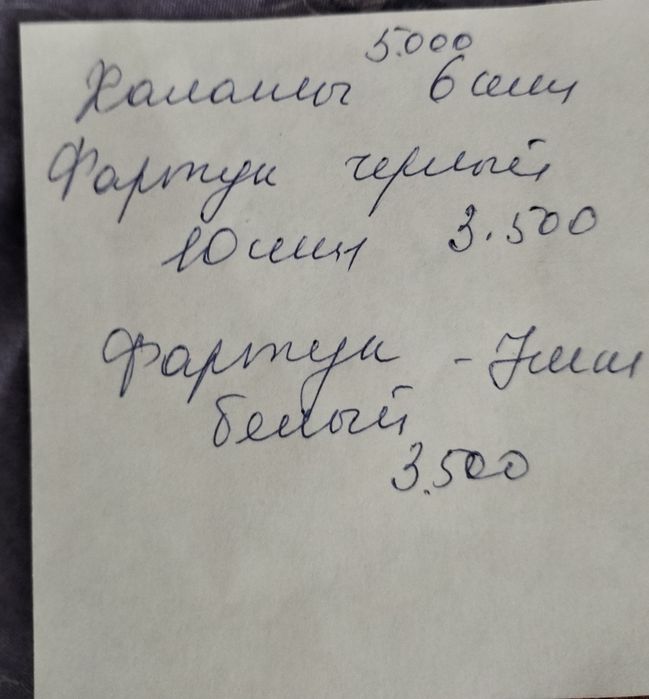 5.000
Халаты 6 шт
Фартук черный
10 шт 3.500
Фартук - 7 шт
белый
3.500